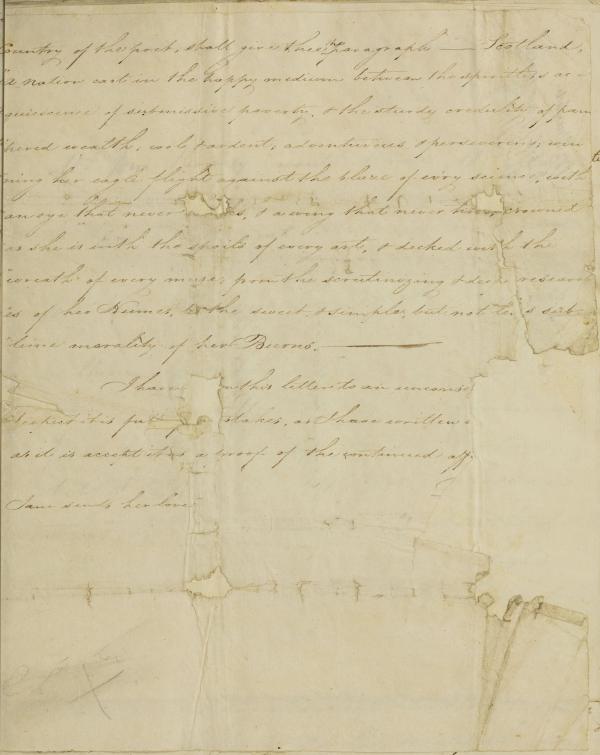 Country of the poet, shall give the paragraph — Scotland,
a nation cast in the happy medium between the spiritless ac-
quiescence of submissive poverty, & the sturdy credulity of pam
pered wealth, cool & ardent, adventurous & persevering, win
ning her eagle flight against the blaze of every science, with
an eye that never s, & a wing that never crowned
as she is with the spoils of every art, & decked with the
wreath of every muse, from the scrutinizing & deep research
es of her Humes, to the sweet & simple, but not less sub-
lime morality of her Burns. —
I have this letter to an
it is full stakes, as I have written
as it is accept it as a proof of the continued aff
Jane sends her love